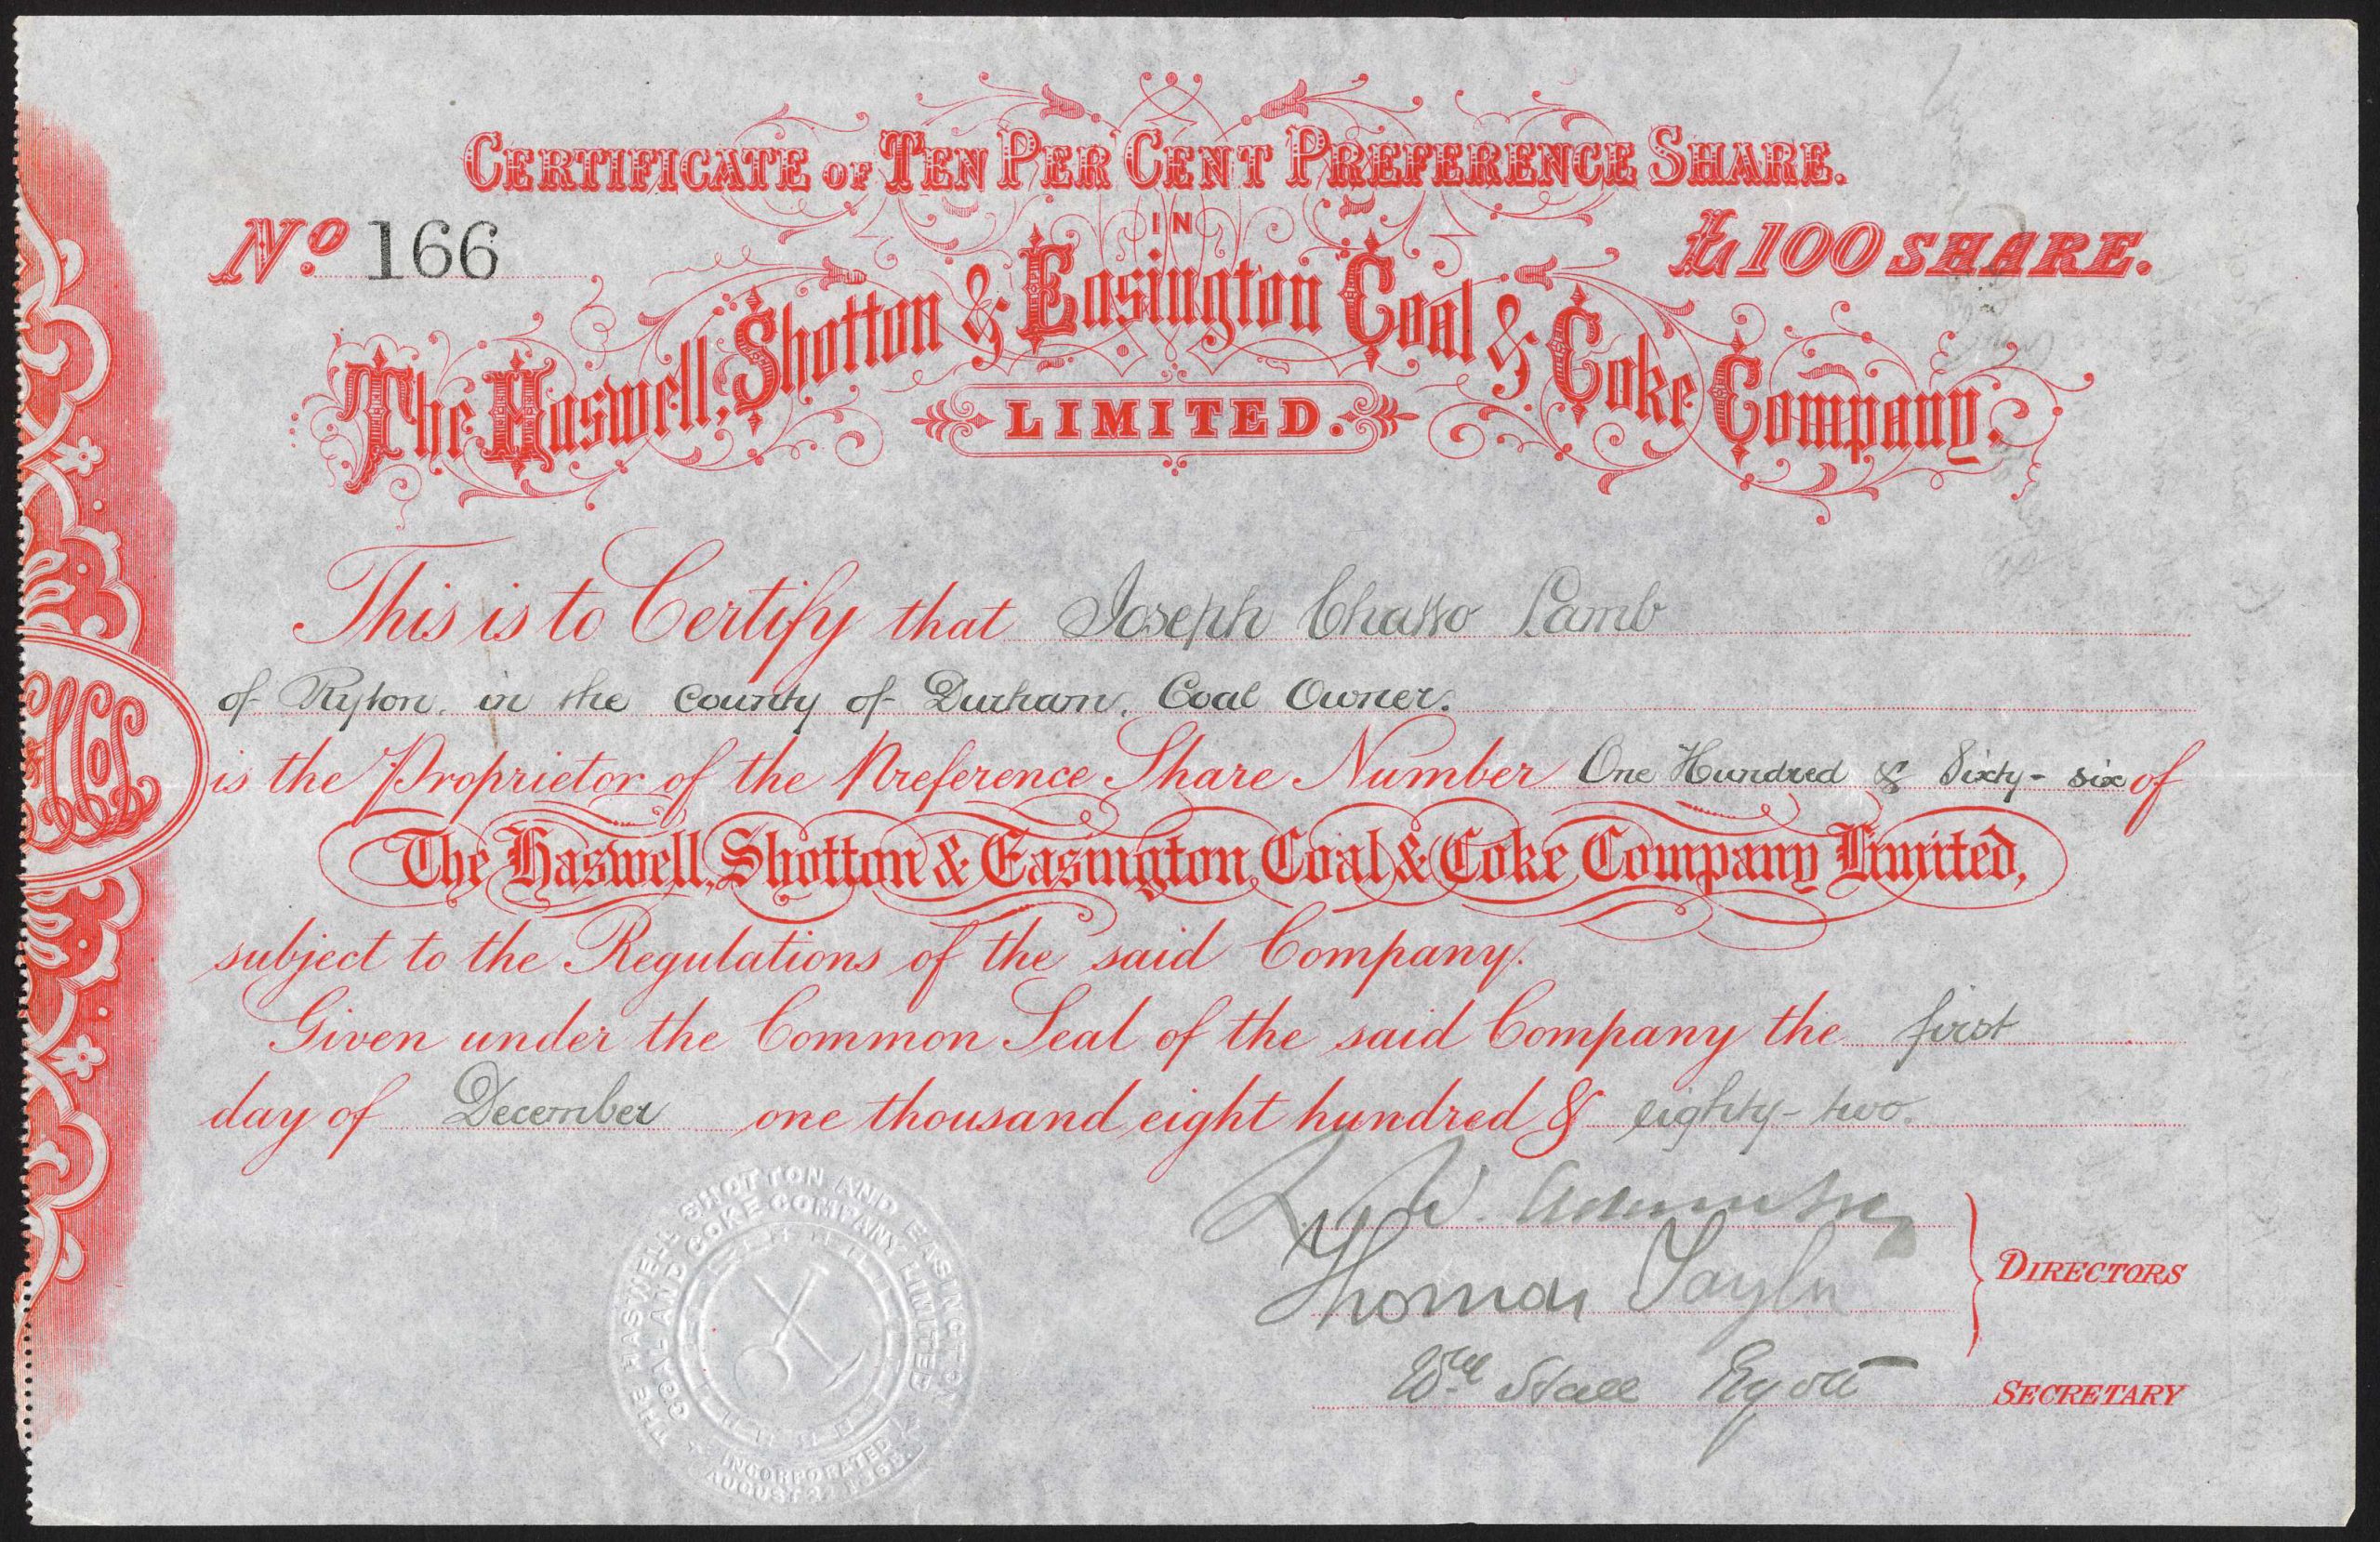 CERTIFICATE OF TEN PER CENT PREFERENCE SHARE.
No. 166
IN
£100 SHARE.
The Haswell, Shotton & Easington Coal & Coke Company.
LIMITED.
This is to Certify that Joseph Chatto Lamb
of Ryton, in the County of Durham, Coal Owner.
is the Proprietor of the Preference Share Number One Hundred & Sixty-six of
The Haswell, Shotton & Easington Coal & Coke Company Limited,
subject to the Regulations of the said Company.
Given under the Common Seal of the said Company the first
day of December one thousand eight hundred & eighty-two.
W.
Thomas Taylor
DIRECTORS
Wm Stace
SECRETARY
THE HASWELL SHOTTON AND EASINGTON
COAL AND COKE COMPANY LIMITED
INCORPORATED
AUGUST